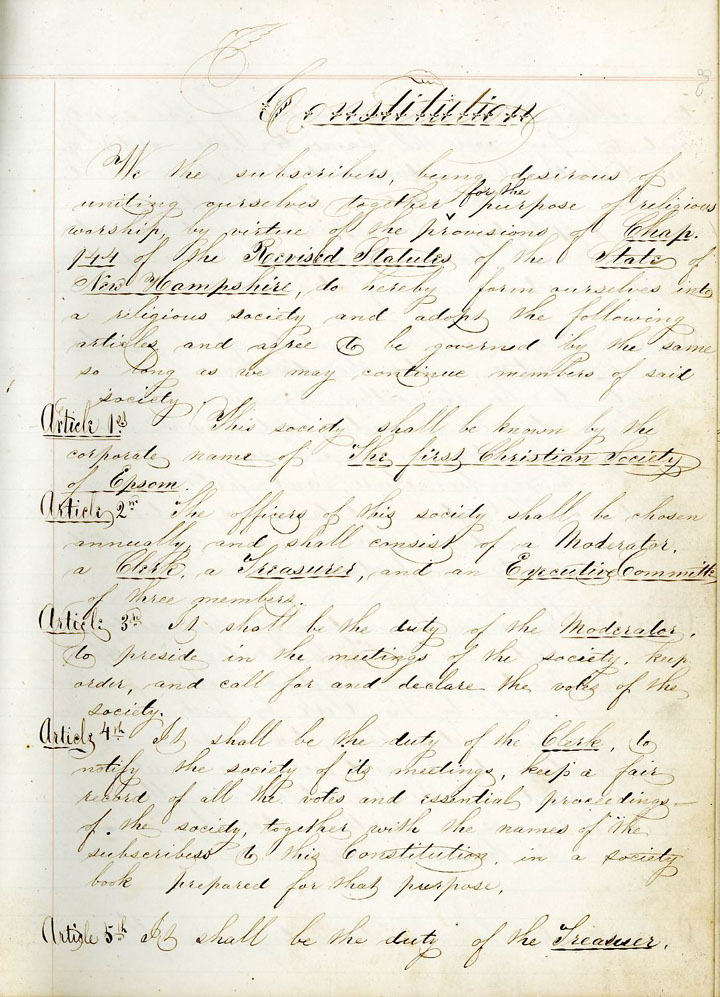 Constitution
We the subscribers, being desirous of
uniting ourselves together for the purpose of religious
worship, by virtue of the provisions of Chap.
144 of the Revised Statutes of the State of
New Hampshire, do hereby form ourselves into
a religious society and adopt the following
articles and agree to be governed by the same
so long as we may continue members of said
society.
Article 1st This society shall be known by the
corporate name of The first Christian Society
of Epsom.
Article 2nd The officers of this society shall be chosen
annually, and shall consist of a Moderator,
a Clerk, a Treasurer, and an Executive Committe
of three members.
Article 3th It shall be the duty of the Moderator,
to preside in the meetings of the society, keep
order, and call for and declare the votes of the
society.
Article 4th It shall be the duty of the Clerk, to
notify the society of its meetings, keep a fair
record of all the votes and essential proceedings
of the society, together with the names of the
subscribers to this Constitution, in a society
book prepared for that purpose.
Article 5th It shall be the duty of the Treasurer,